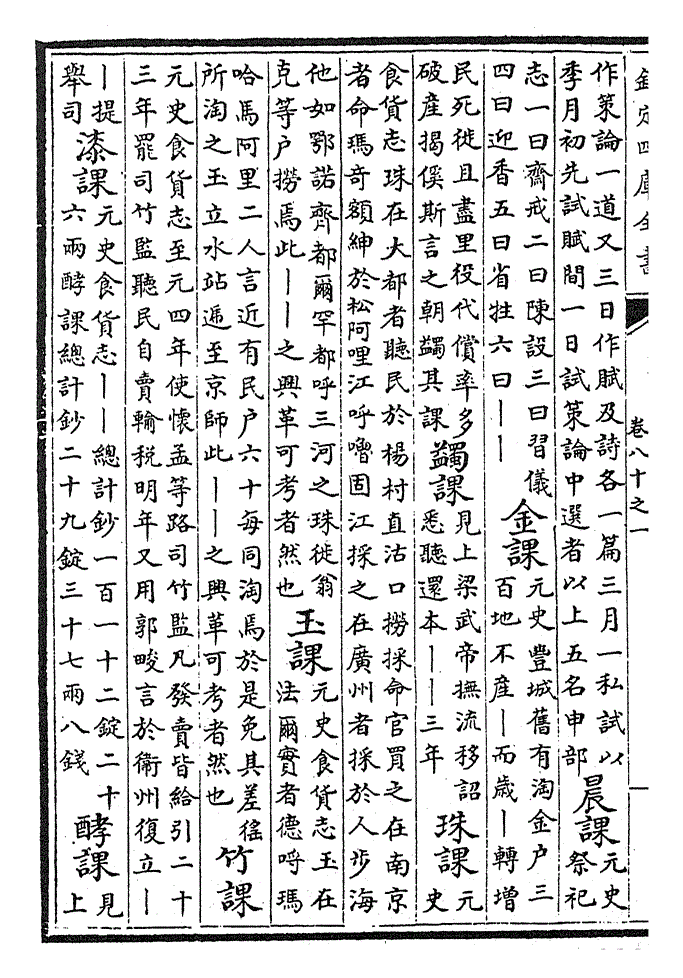 欽定四庫全書
卷八十之一
作策論一道又三日作賦及詩各一篇三月一私試以
季月初先試賦間一日試策論中選者以上五名申部
晨課
元史
祭祀
志一曰齋戒二曰陳設三曰習儀
四曰迎香五曰省牲六曰｜｜
金課
元史豐城舊有淘金户三
百地不産｜而歲｜轉增
民死徙且盡里役代償率多
破産揭傒斯言之朝蠲其課
蠲課
見上梁武帝撫流移詔
悉聽還本｜｜三年
珠課
元
史
食貨志珠在大都者聽民於楊村直沽口撈採命官買之在南京
者命瑪竒額紳於松阿哩江呼嚕固江採之在廣州者採於人歩海
他如鄂諾齊都爾罕都呼三河之珠徙翁
克等户撈焉此｜｜之興革可考者然也
玉課
元史食貨志玉在
法爾實者德呼瑪
哈馬阿里二人言近有民户六十每同淘焉於是免其差徭
所淘之玉立水站遞至京師此｜｜之興革可考者然也
竹課
元史食貨志至元四年使懷孟等路司竹監凡發賣皆給引二十
三年罷司竹監聽民自賣輸税明年又用郭畯言於衞州復立｜
｜提
舉司
漆課
元史食貨志｜｜總計鈔一百一十二錠二十
六兩酵課總計鈔二十九錠三十七兩八錢
酵課
見
上